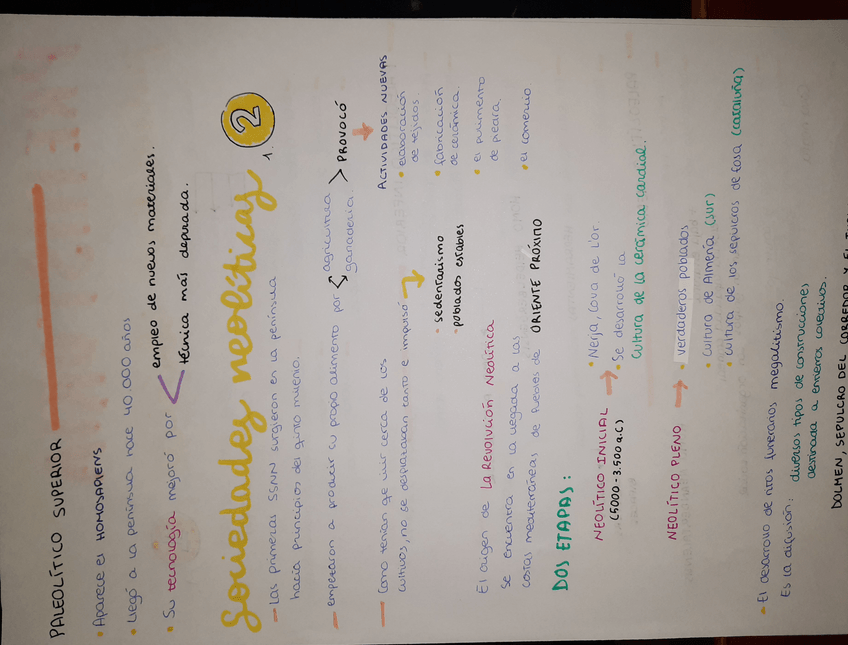 PALEOLÍTICO SUPERIOR
• Aparece el HOMOSAPIENS
• Llegó a la península hace 40 000 años
• Su tecnología mejoró por
empleo de nuevos materiales.
técnica más depurada.
Sociedades neolíticas 2
1.
— Las primeras SSNN surgieron en la península
hacia principios del quinto milenio.
— empezaron a producir su propio alimento por
agricultura
ganadería.
> PROVOCÓ
— Como tenían que vivir cerca de los
cultivos, no se desplazaban tanto e impulsó
• sedentarismo
• poblados estables
ACTIVIDADES NUEVAS
• elaboración
de tejidos.
• fabricación
de cerámica.
• el pulimento
de piedra.
• el comercio
El origen de La Revolución Neolítica
se encuentra en la llegada a las
costas mediterráneas de pueblos de ORIENTE PRÓXIMO
DOS ETAPAS:
NEOLÍTICO INICIAL →
(5000-3.500 a.C)
• Nerja, Cova de L'or
• Se desarrolló la
cultura de la cerámica cardial.
NEOLÍTICO PLENO →
• verdaderos poblados
• Cultura de Almería (sur)
• cultura de los sepulcros de fosa (cataluña)
• El desarrollo de ritos funerarios megalitismo.
Es la difusión: diversos tipos de construcciones
destinada a entierros colectivos.
DOLMEN, SEPULCRO DEL CORREDOR Y EL